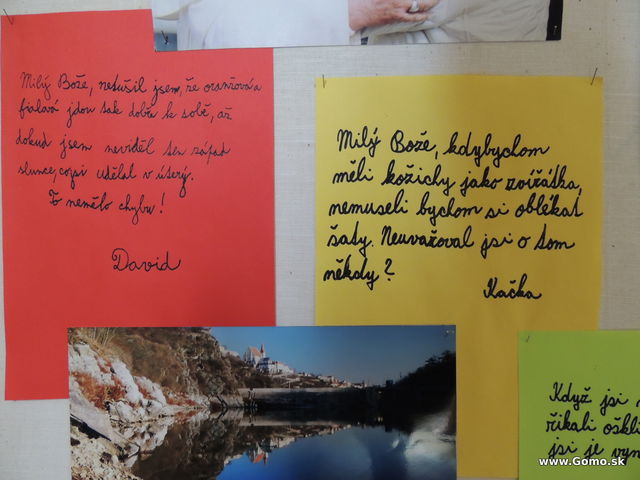 Milý Bože, netušil jsem, že oranžová a
fialová jdou tak dobře k sobě, až
dokud jsem neviděl ten západ
slunce, cos udělal v úterý.
To nemělo chybu!
David
Milý Bože, kdybychom
měli kožichy jako zvířátka,
nemuseli bychom si oblékat
šaty. Neuvažoval jsi o tom
někdy?
Kačka
Když jsi
říkali
jsi je
www.Gomo.sk